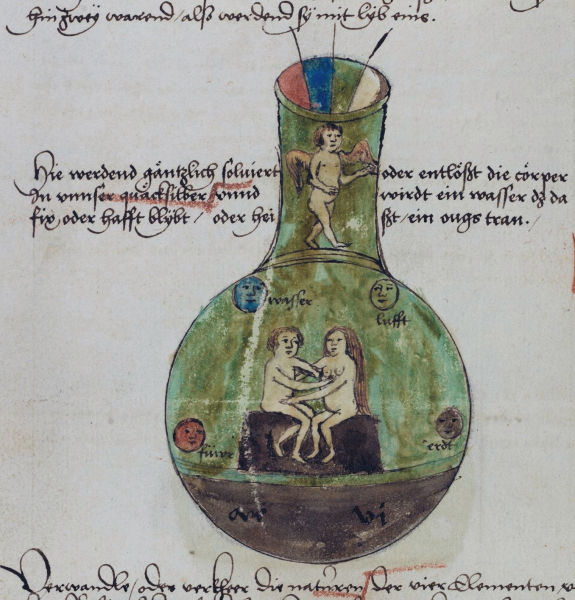 hin zwey warend / alß werdend sÿ mit lÿb eins.
Hie werdend gäntzlich solviert oder entlößt die cörper
In vnnser quäcksilber / vnnd wirdt ein wasser dz da
fix oder hafft blÿbt / oder hei ßt / ein ougs tran ./
wasser
lufft
füwr
erdt
vi
Verwandle / oder verkheer die natúren / der vier Elementen